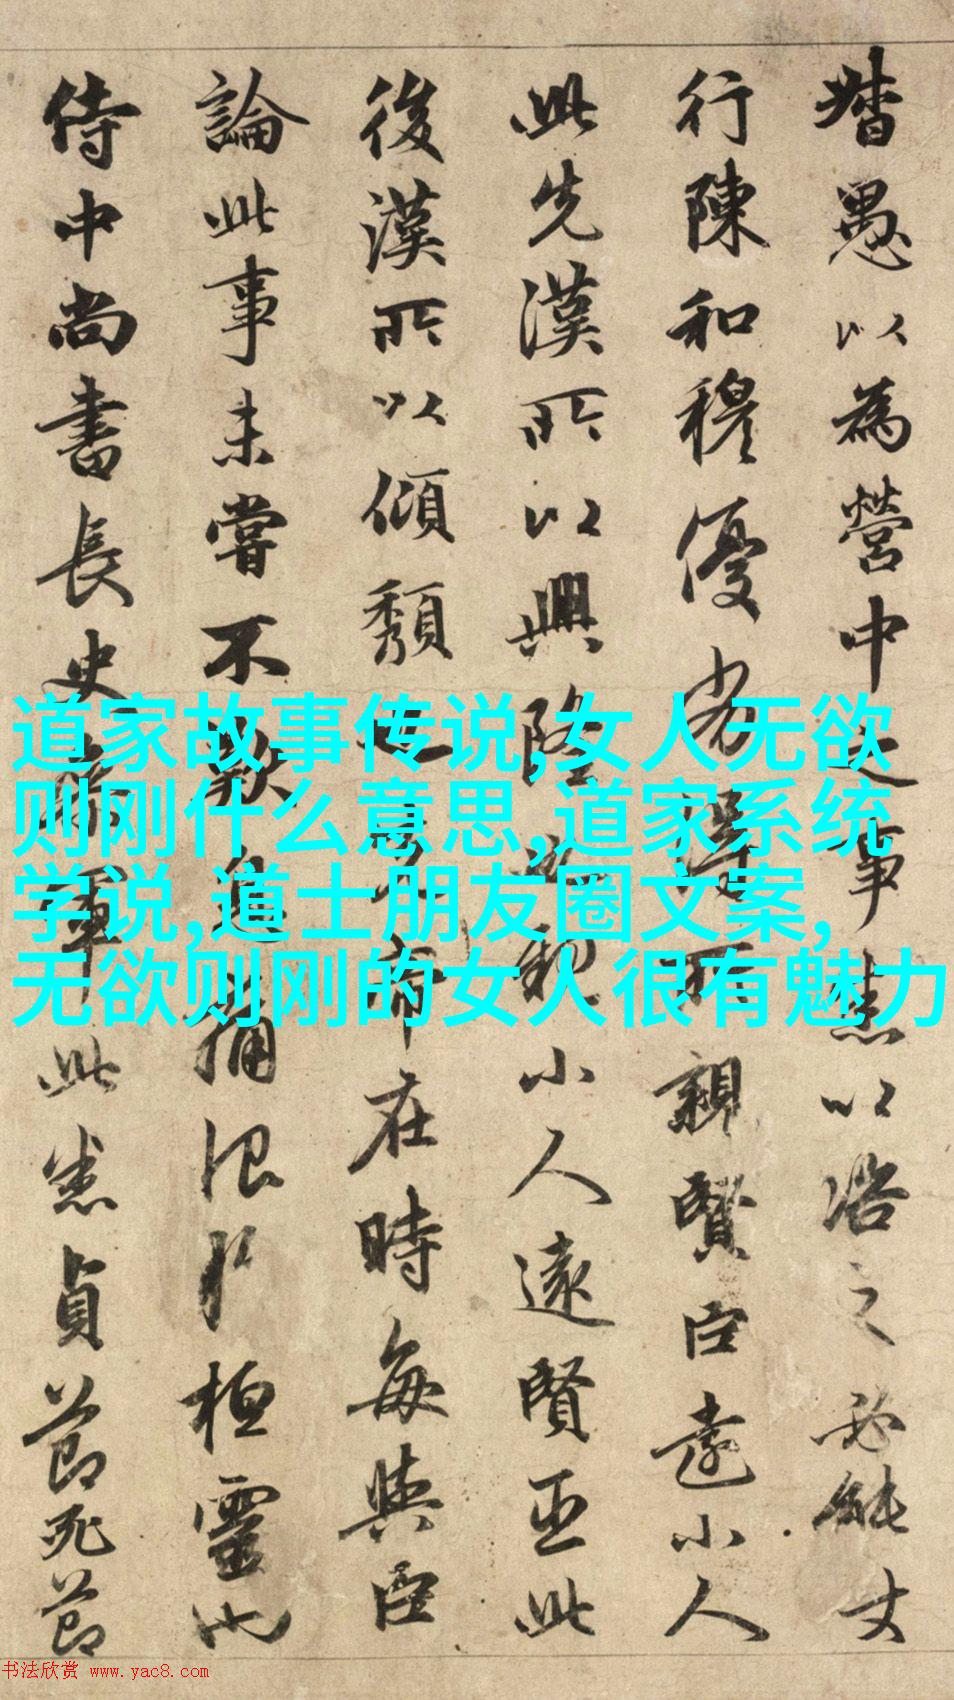 督愚以為營中之事悉以諮之必能使
行陳和穆優劣得所親賢臣遠小人
此先漢所以興隆也親小人遠賢臣此
後漢所以傾頹也先帝在時每與臣
論此事未嘗不歎息痛恨於桓靈也
侍中尚書長史參軍此悉貞節死節
道家故事传说,女人无欲
则刚什么意思,道家系统
学说,道士朋友圈文案,
无欲则刚的女人很有魅力
书法欣赏 www.yac8.com